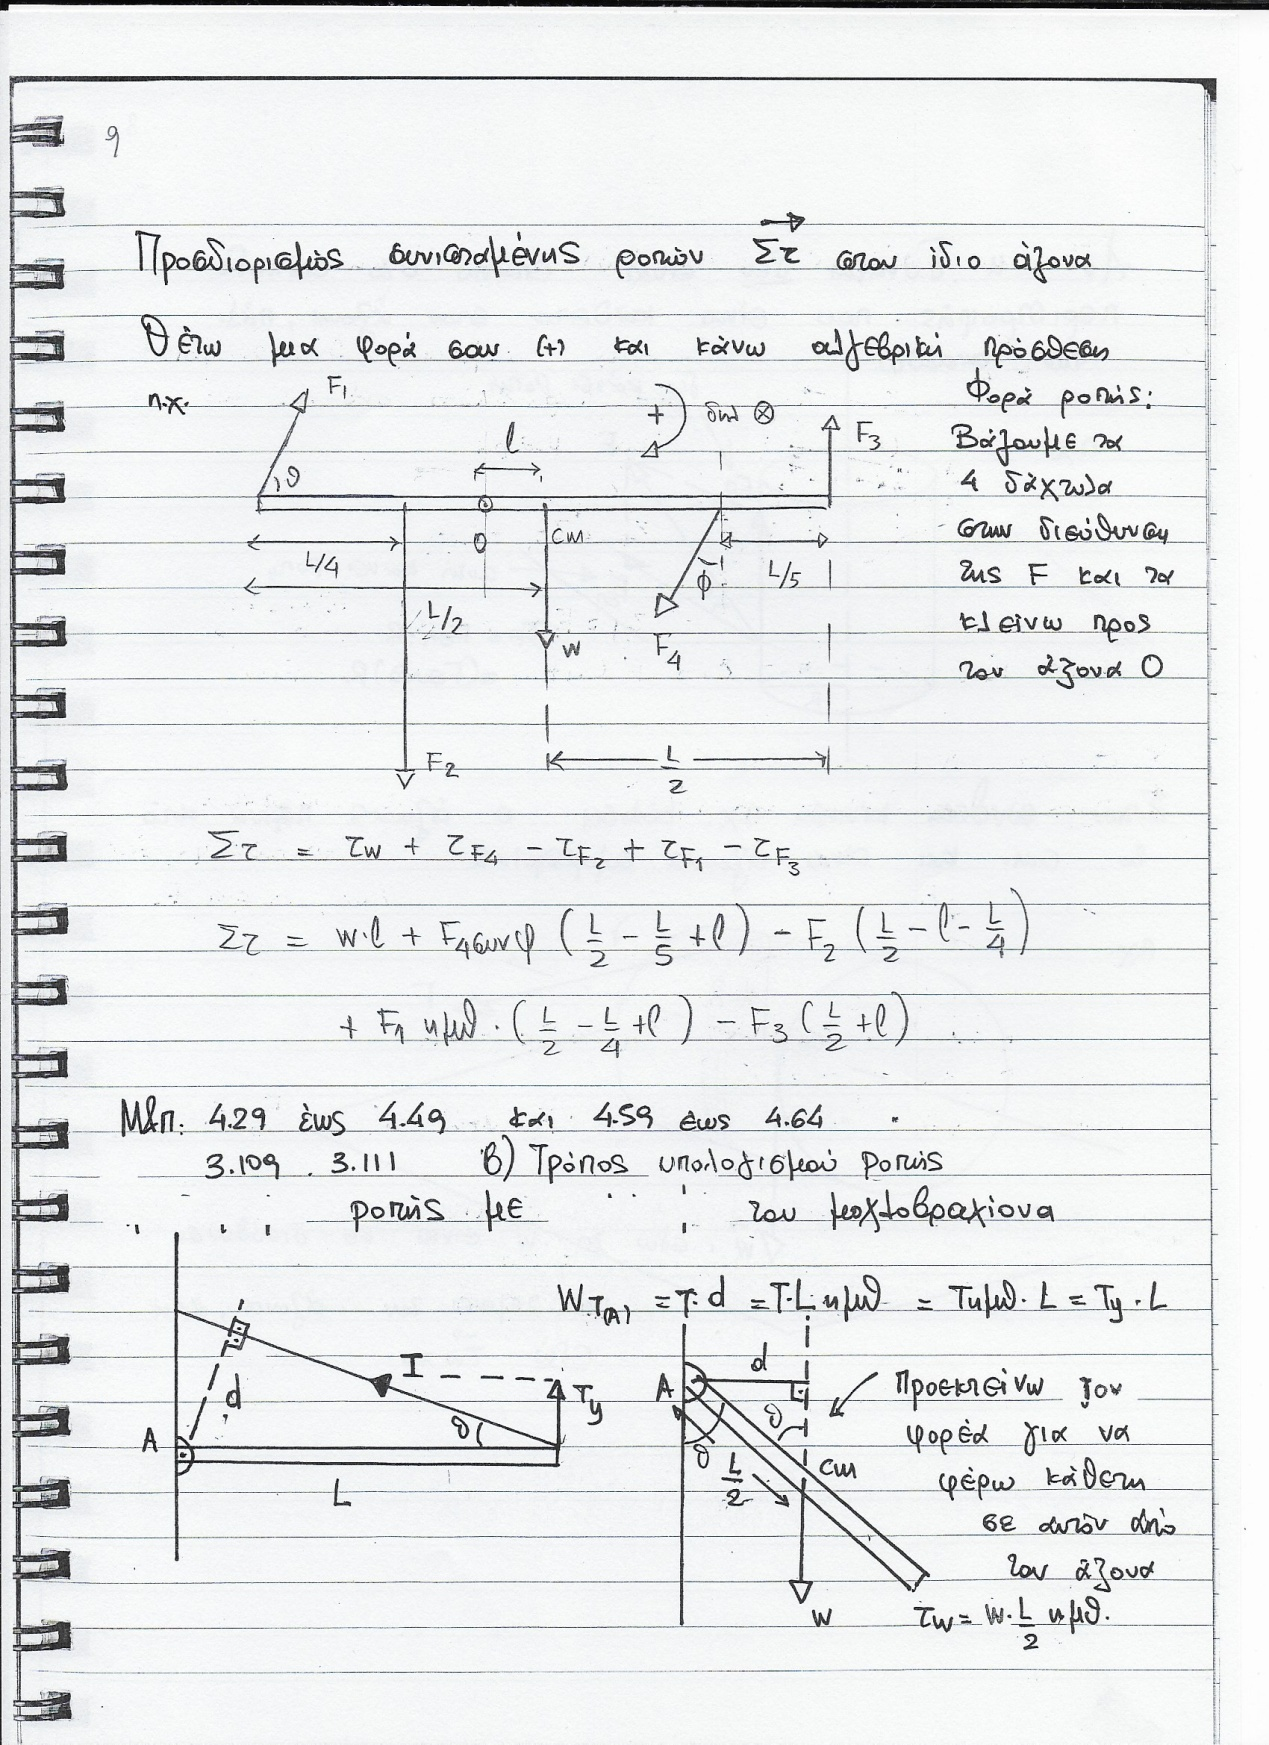 9
Προσδιορισμός συνισταμένης ροπών Στ στον ίδιο άξονα
Θέτω μια φορά σαν (+) και κάνω αλγεβρική πρόσθεση
π.χ.
F1
θ
l
+
δηλ ⊗
F3
O
cm
L/4
L/2
w
φ
F4
L/5
F2
L/2
Φορά ροπής:
Βάζουμε τα
4 δάχτυλα
στην διεύθυνση
της F και τα
κλείνω προς
τον άξονα O
Στ = τw + τF4 - τF2 + τF1 - τF3
Στ = w·l + F4συνφ (L/2 - L/5 + l) - F2 (L/2 - l - L/4)
+ F1 ημθ · (L/2 - L/4 + l) - F3 (L/2 + l)
Μ&Π: 4.29 έως 4.49 και 4.59 έως 4.64
3.109 . 3.111 β) Τρόπος υπολογισμού ροπής
ροπής με τον μοχλοβραχίονα
W T(A) = T·d = T·L ημθ = Tημθ·L = Ty·L
d
T
Ty
θ
A
L
A
d
θ
θ
L/2
cm
w
Προεκτείνω τον
φορέα για να
φέρω κάθετη
σε αυτόν από
τον άξονα
τw = w·L/2 ημθ.